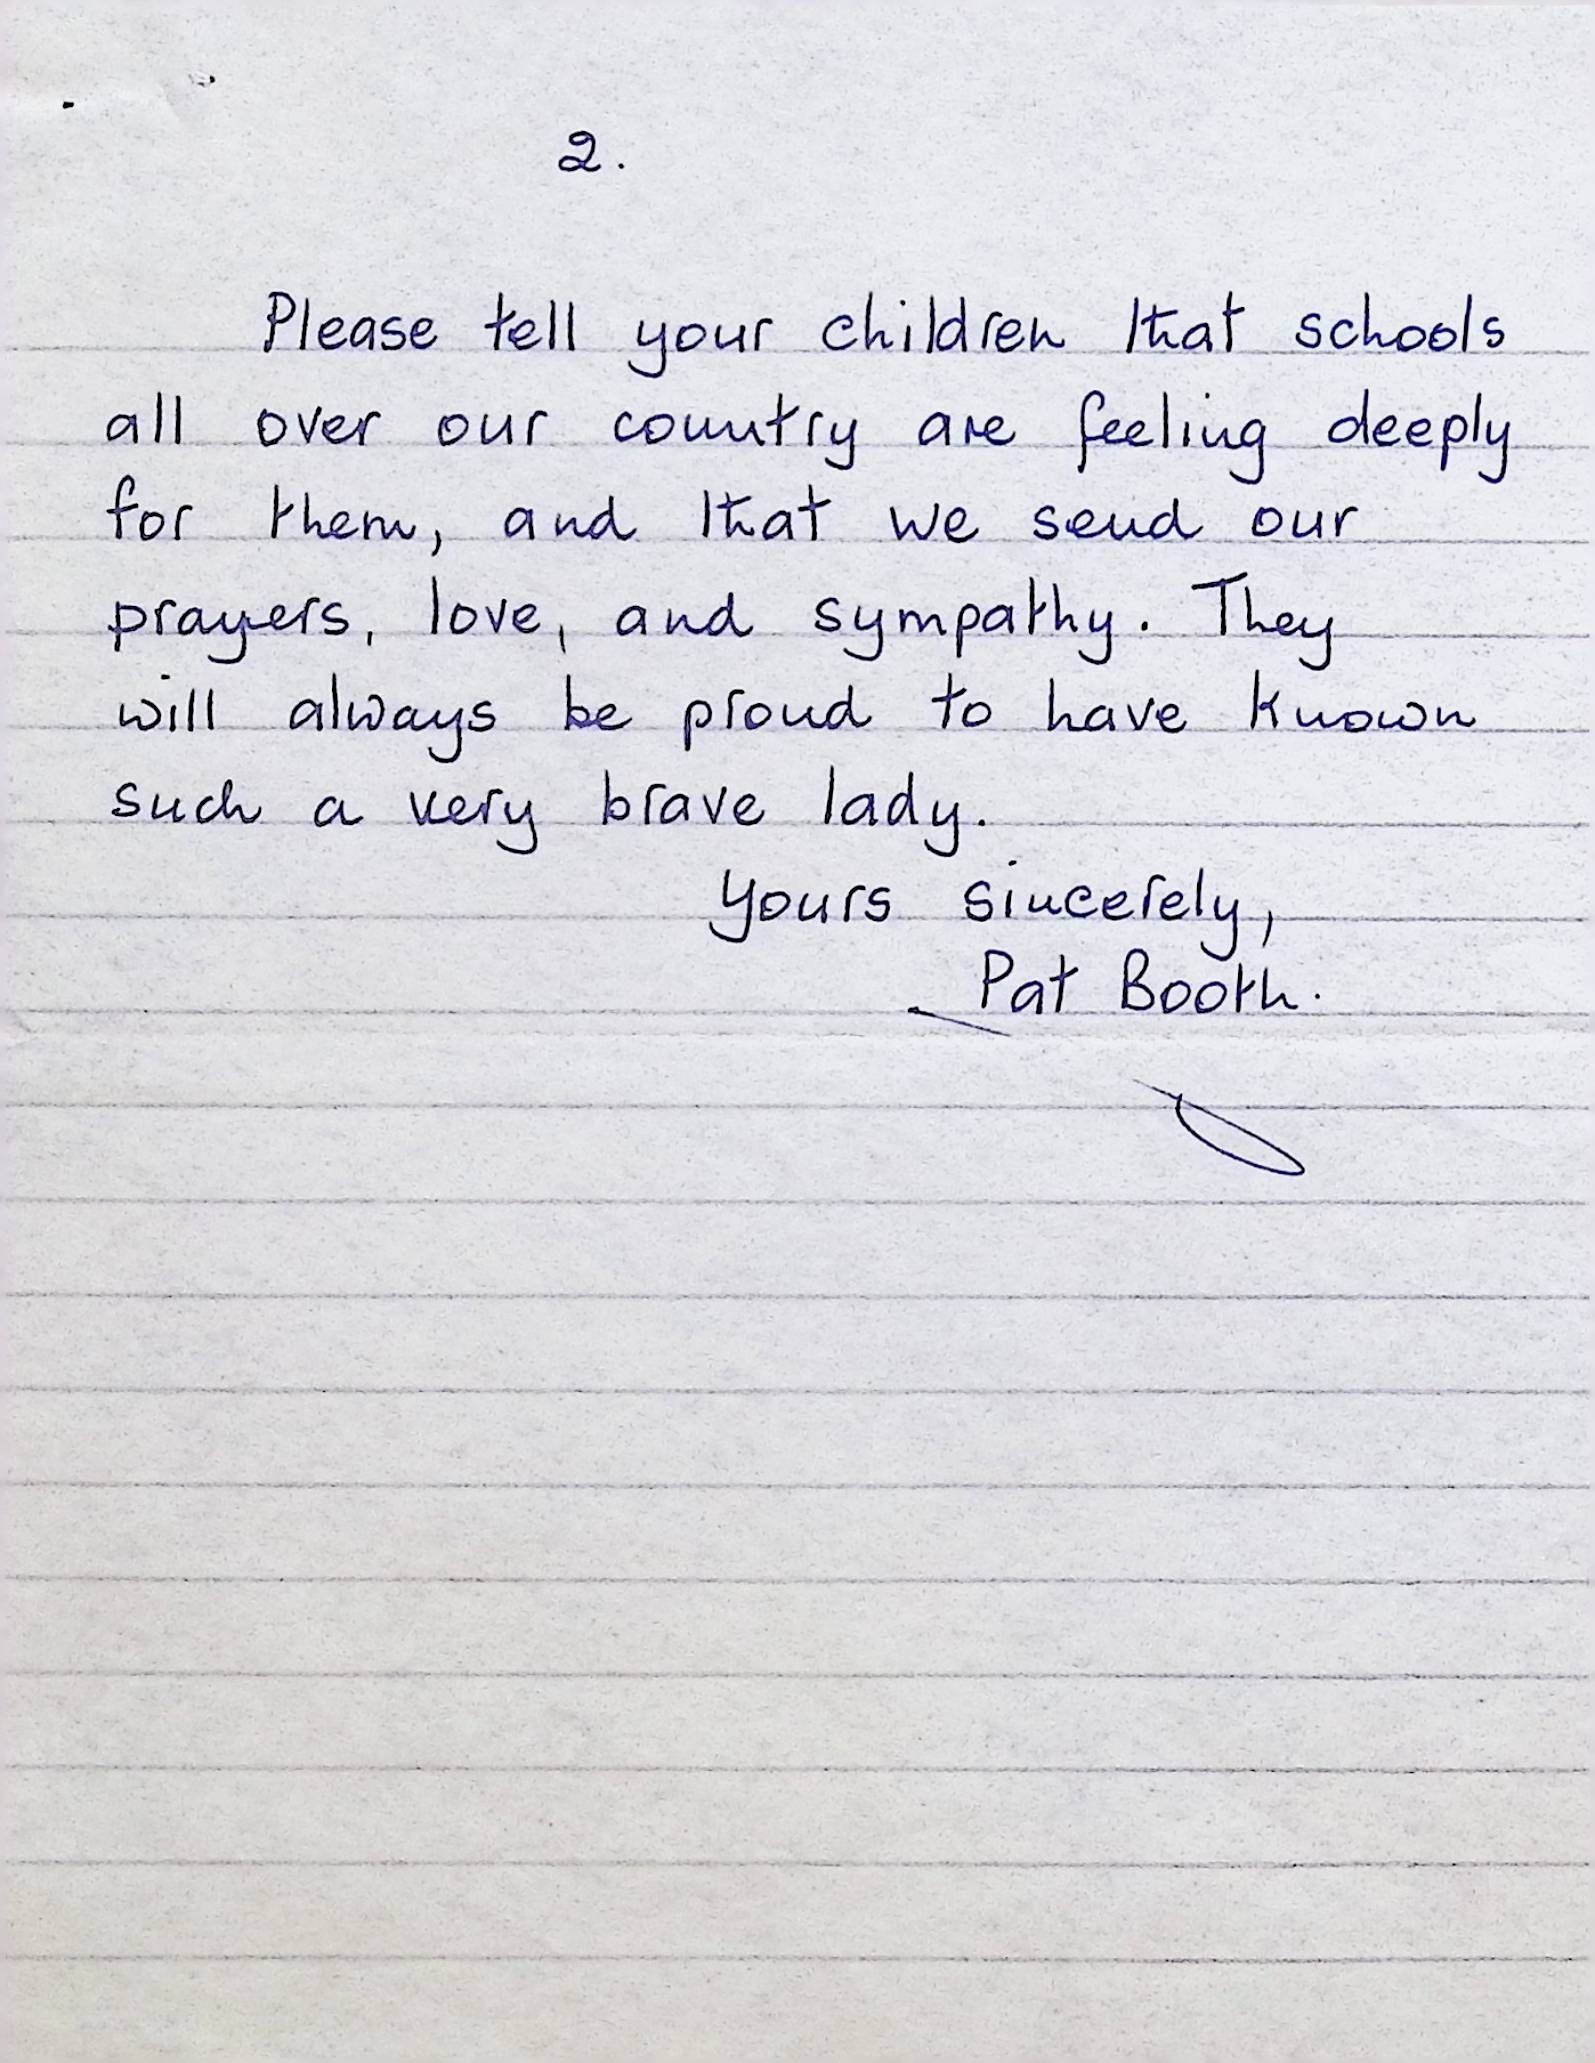 2.
Please tell your children that schools
all over our country are feeling deeply
for them, and that we send our
prayers, love, and sympathy. They
will always be proud to have known
such a very brave lady.
Yours sincerely,
Pat Booth.